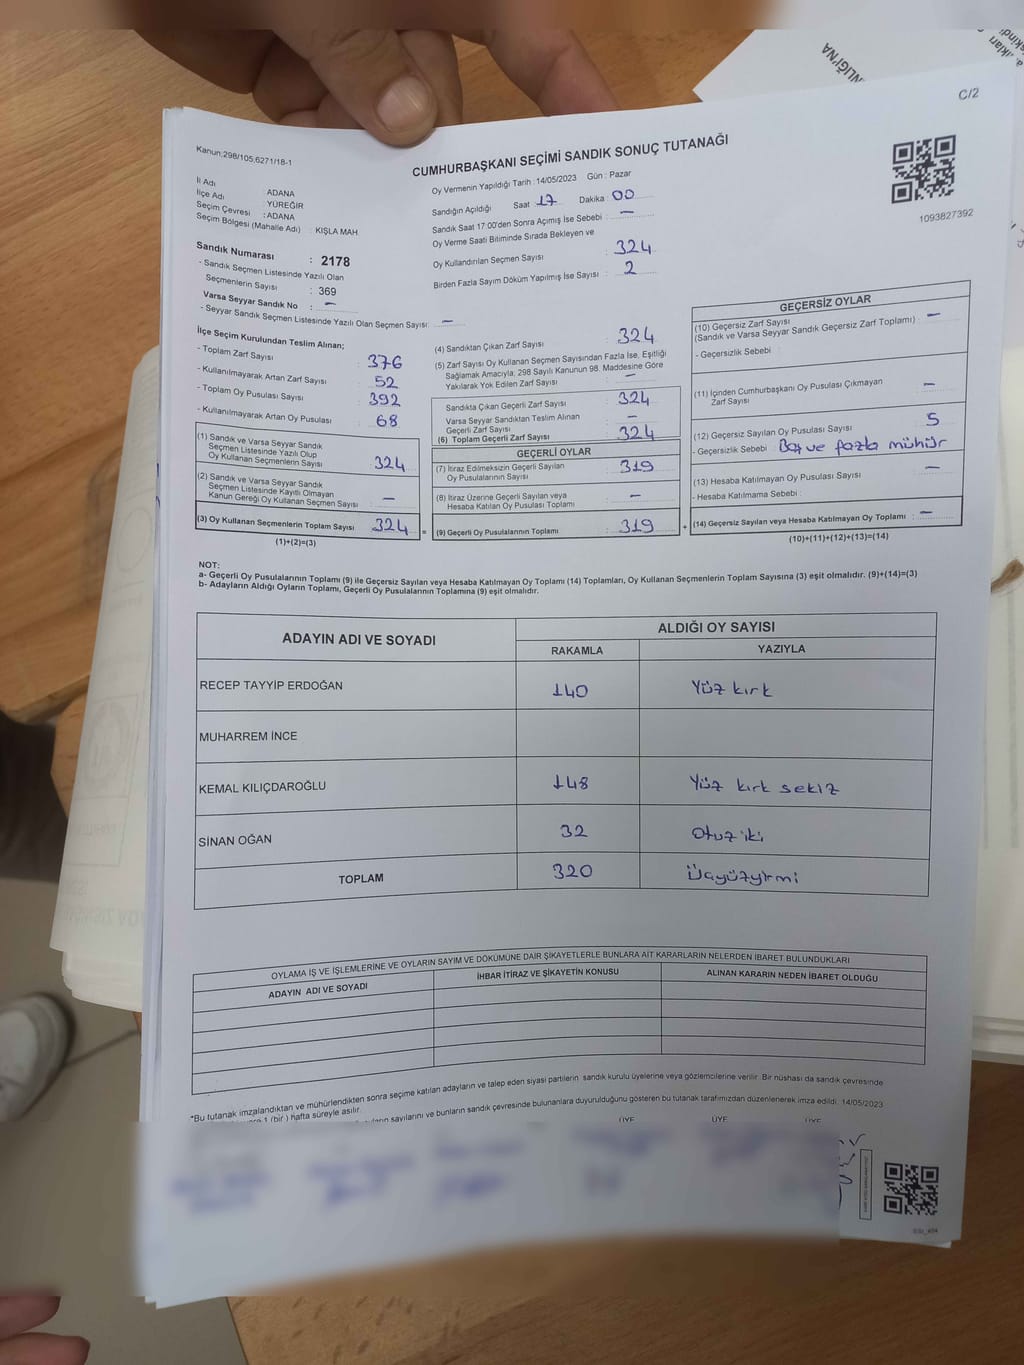 C/2
Kanun:298/105,6271/18-1
CUMHURBAŞKANI SEÇİMİ SANDIK SONUÇ TUTANAĞI
1093827392
İl Adı : ADANA
İlçe Adı : YÜREĞİR
Seçim Çevresi : ADANA
Seçim Bölgesi (Mahalle Adı) : KIŞLA MAH
Sandık Numarası : 2178
- Sandık Seçmen Listesinde Yazılı Olan
Seçmenlerin Sayısı : 369
Varsa Seyyar Sandık No : –
- Seyyar Sandık Seçmen Listesinde Yazılı Olan Seçmen Sayısı: –
Oy Vermenin Yapıldığı Tarih : 14/05/2023 Gün : Pazar
Sandığın Açıldığı Saat 17 Dakika : 00
Sandık Saat 17:00'den Sonra Açımış İse Sebebi : –
Oy Verme Saati Bitiminde Sırada Bekleyen ve
Oy Kullandırılan Seçmen Sayısı : 324
Birden Fazla Sayım Döküm Yapılmış İse Sayısı : 2
İlçe Seçim Kurulundan Teslim Alınan;
- Toplam Zarf Sayısı : 376
- Kullanılmayarak Artan Zarf Sayısı : 52
- Toplam Oy Pusulası Sayısı : 392
- Kullanılmayarak Artan Oy Pusulası : 68
(1) Sandık ve Varsa Seyyar Sandık
Seçmen Listesinde Yazılı Olup
Oy Kullanan Seçmenlerin Sayısı : 324
(2) Sandık ve Varsa Seyyar Sandık
Seçmen Listesinde Kayıtlı Olmayan
Kanun Gereği Oy Kullanan Seçmen Sayısı : –
(3) Oy Kullanan Seçmenlerin Toplam Sayısı : 324
(1)+(2)=(3)
(4) Sandıktan Çıkan Zarf Sayısı : 324
(5) Zarf Sayısı Oy Kullanan Seçmen Sayısından Fazla İse, Eşitliği
Sağlamak Amacıyla; 298 Sayılı Kanunun 98. Maddesine Göre
Yakılarak Yok Edilen Zarf Sayısı : –
Sandıkta Çıkan Geçerli Zarf Sayısı : 324
Varsa Seyyar Sandıktan Teslim Alınan
Geçerli Zarf Sayısı : –
(6) Toplam Geçerli Zarf Sayısı : 324
GEÇERLİ OYLAR
(7) İtiraz Edilmeksizin Geçerli Sayılan
Oy Pusulasının Sayısı : 319
(8) İtiraz Üzerine Geçerli Sayılan veya
Hesaba Katılan Oy Pusulası Toplamı : –
= (9) Geçerli Oy Pusulalarının Toplamı : 319 +
GEÇERSİZ OYLAR
(10) Geçersiz Zarf Sayısı
(Sandık ve Varsa Seyyar Sandık Geçersiz Zarf Toplamı) : –
- Geçersizlik Sebebi :
(11) İçinden Cumhurbaşkanı Oy Pusulası Çıkmayan
Zarf Sayısı : –
(12) Geçersiz Sayılan Oy Pusulası Sayısı : 5
- Geçersizlik Sebebi : Boş ve fazla mühür
(13) Hesaba Katılmayan Oy Pusulası Sayısı : –
- Hesaba Katılmama Sebebi :
(14) Geçersiz Sayılan veya Hesaba Katılmayan Oy Toplamı : –
(10)+(11)+(12)+(13)=(14)
NOT:
a- Geçerli Oy Pusulalarının Toplamı (9) ile Geçersiz Sayılan veya Hesaba Katılmayan Oy Toplamı (14) Toplamları, Oy Kullanan Seçmenlerin Toplam Sayısına (3) eşit olmalıdır. (9)+(14)=(3)
b- Adayların Aldığı Oyların Toplamı, Geçerli Oy Pusulalarının Toplamına (9) eşit olmalıdır.
ADAYIN ADI VE SOYADI ALDIĞI OY SAYISI
RAKAMLA YAZIYLA
RECEP TAYYİP ERDOĞAN 140 Yüz kırk
MUHARREM İNCE
KEMAL KILIÇDAROĞLU 148 Yüz kırk sekiz
SİNAN OĞAN 32 otuz iki
TOPLAM 320 Üçyüzyirmi
OYLAMA İŞ VE İŞLEMLERİNE VE OYLARIN SAYIM VE DÖKÜMÜNE DAİR ŞİKAYETLERLE BUNLARA AİT KARARLARIN NELERDEN İBARET BULUNDUKLARI
ADAYIN ADI VE SOYADI İHBAR İTİRAZ VE ŞİKAYETİN KONUSU ALINAN KARARIN NEDEN İBARET OLDUĞU
*Bu tutanak imzalandıktan ve mühürlendikten sonra seçime katılan adayların ve talep eden siyasi partilerin sandık kurulu üyelerine veya gözlemcilerine verilir. Bir nüshası da sandık çevresinde
1 (bir) hafta süreyle asılır.
sayılarını ve bunların sandık çevresinde bulunanlara duyurulduğunu gösteren bu tutanak tarafımızdan düzenlenerek imza edildi. 14/05/2023
ÜYE ÜYE ÜYE